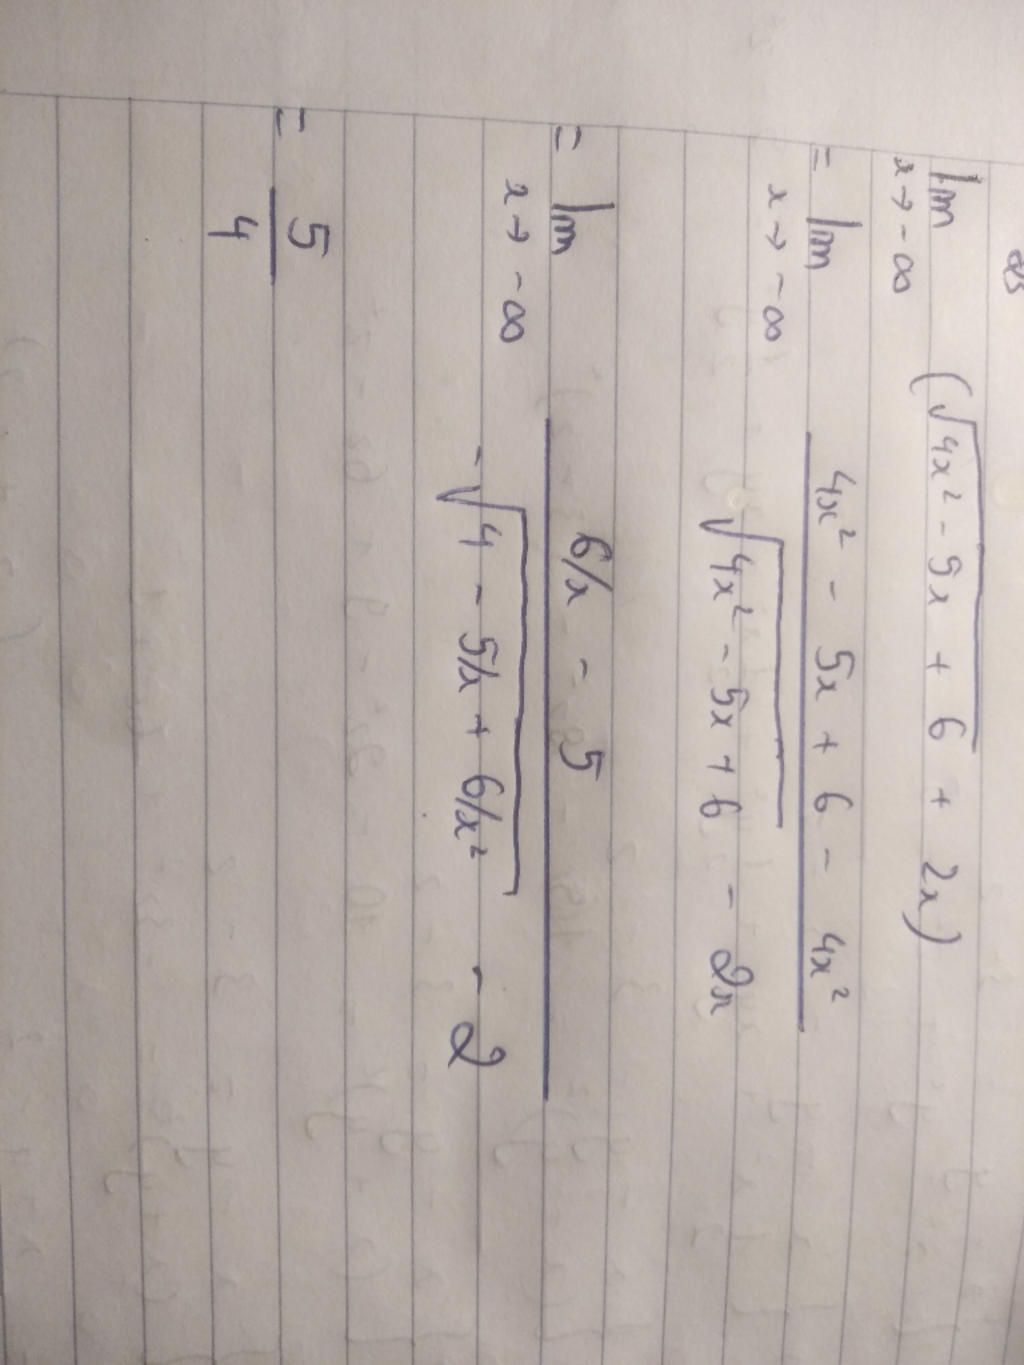 lim (√4x² - 5x + 6 + 2x)
x → -∞
= lim 4x² - 5x + 6 - 4x²
x → -∞ √4x² - 5x + 6 - 2x
= lim 6/x - 5
x → -∞ -√4 - 5/x + 6/x² - 2
= 5
4